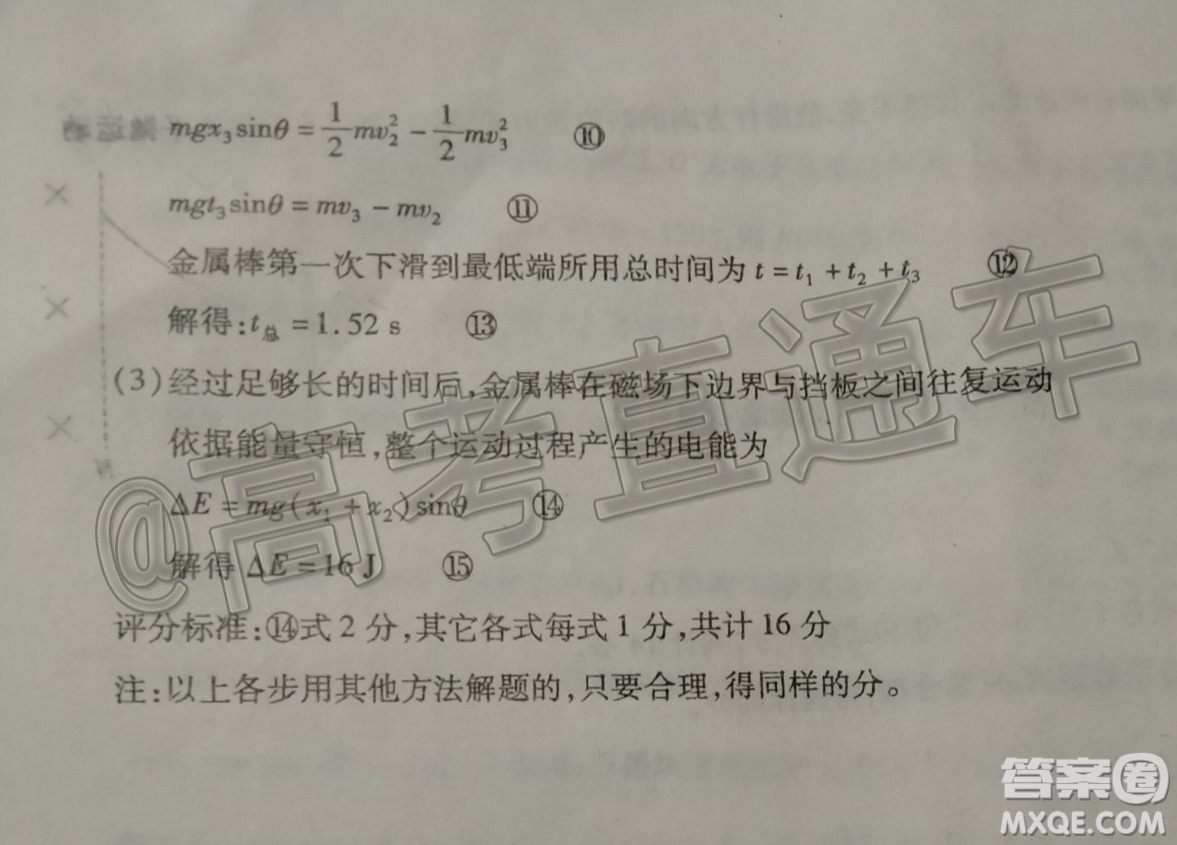 mgx₃sinθ = 1/2 mv₂² − 1/2 mv₃² ⑩
mgt₃sinθ = mv₃ − mv₂ ⑪
金属棒第一次下滑到最低端所用总时间为 t = t₁ + t₂ + t₃ ⑫
解得:t总 = 1.52 s ⑬
(3)经过足够长的时间后,金属棒在磁场下边界与挡板之间往复运动
依据能量守恒,整个运动过程产生的电能为
ΔE = mg(x₁ + x₂)sinθ ⑭
解得 ΔE = 16 J ⑮
评分标准:⑭式2分,其它各式每式1分,共计16分
注:以上各步用其他方法解题的,只要合理,得同样的分。
@高考直通车
答案圈
MXQE.COM